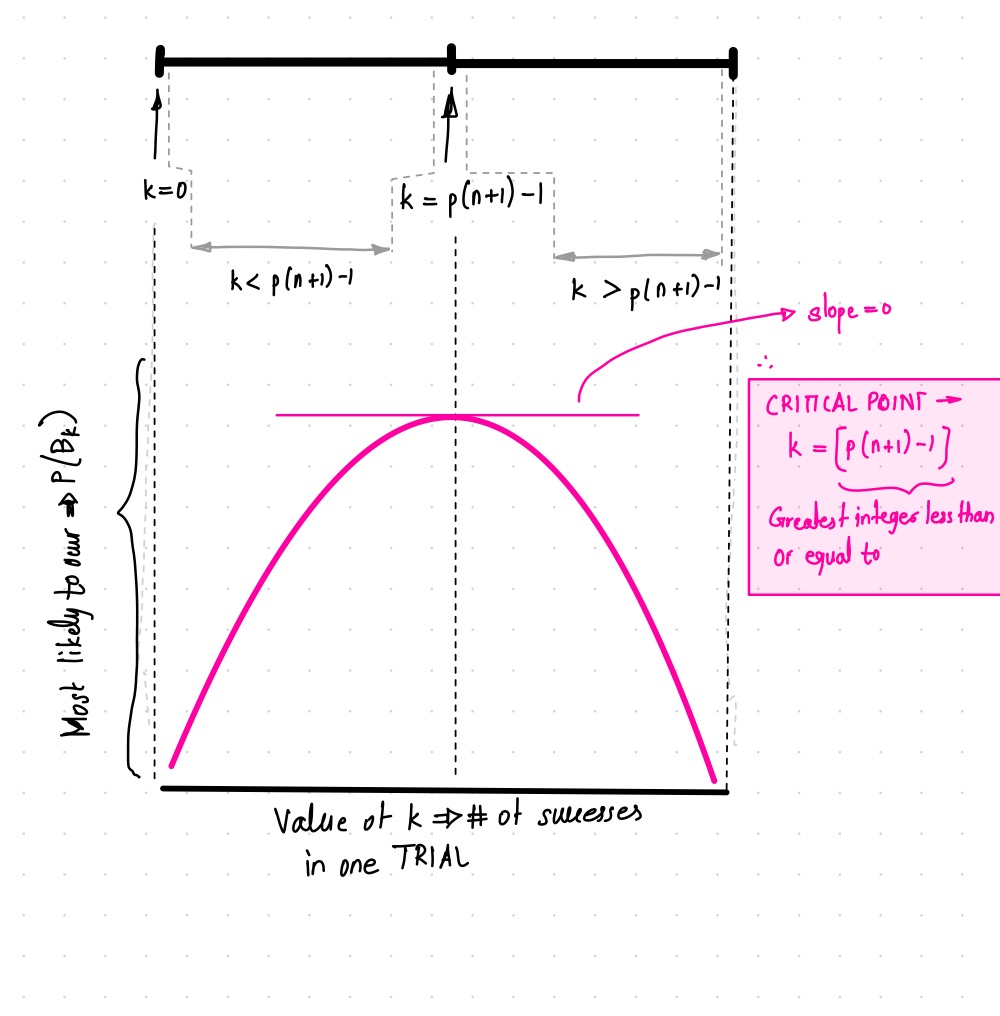 k=0
k = p(n+1)-1
k< p(n+1)-1
k > p(n+1)-1
slope=0
∴
CRITICAL POINT →
k = [p(n+1)-1]
Greatest integer less than
or equal to
Most likely to occur ⇒ P(Bk)
Value of k ⇒ # of successes
in one TRIAL